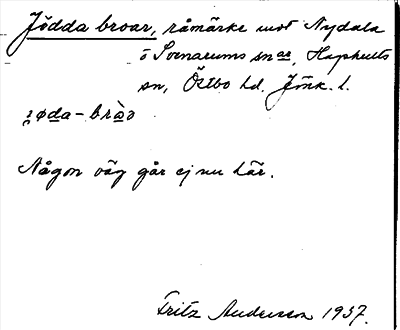 Jödda broar, råmärke mot Nydala
o Svenarums snar, Hagshults
sn, Östbo hd. Jönk. l.
jøda-bròɑ
Någon väg går ej nu här.
Fritz Andersson 1937.